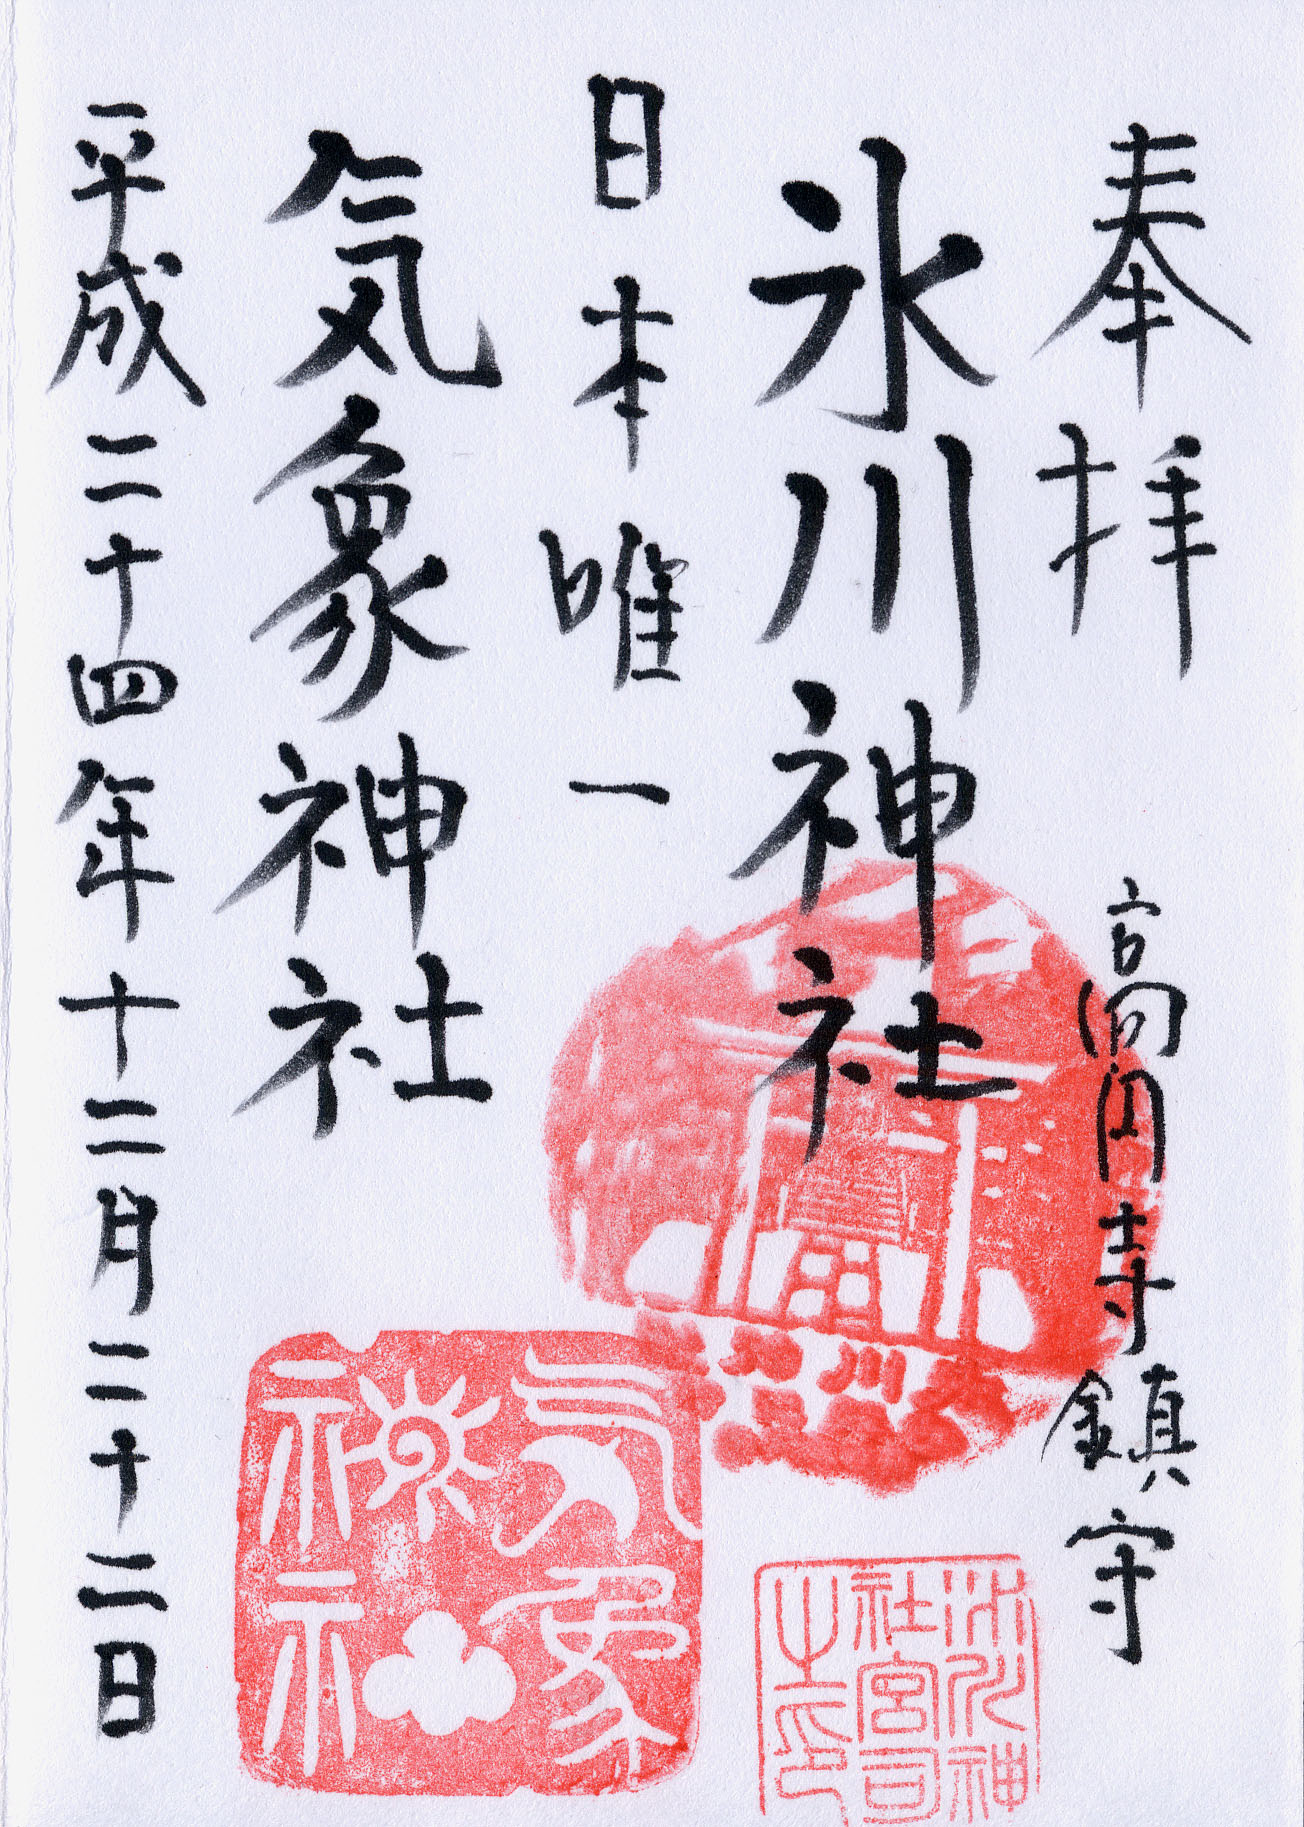 奉拝
高円寺鎮守
氷川神社
日本唯一
気象神社
平成二十四年十二月二十二日
氷川神
社宮司
之印
気象
神社
川